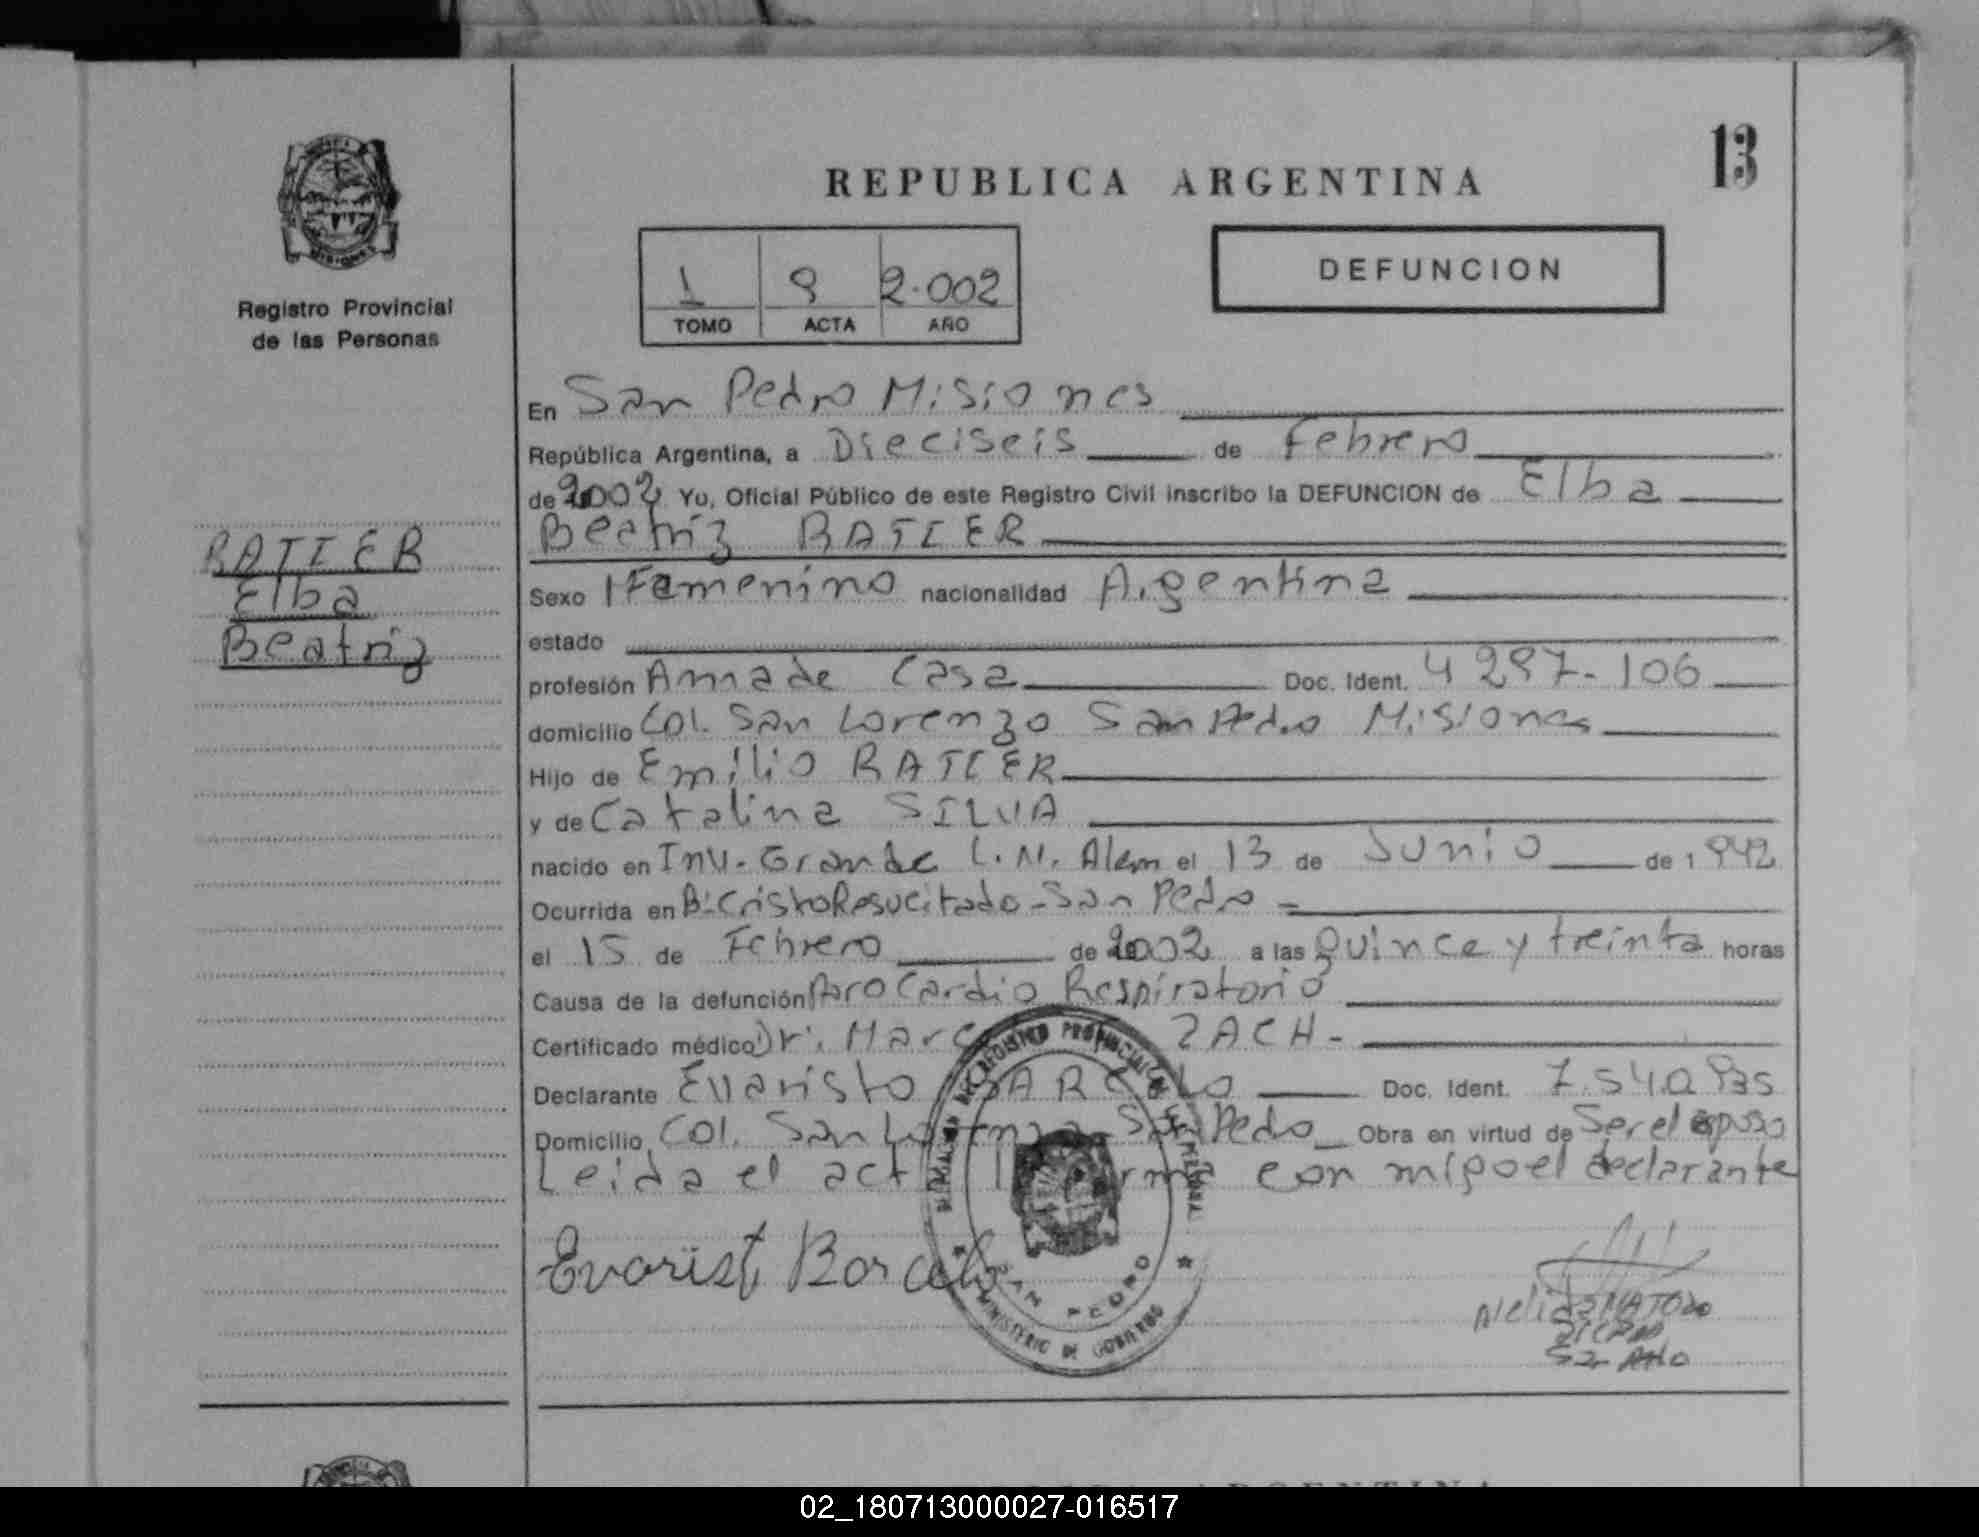 13
REPUBLICA ARGENTINA
DEFUNCION
1 9 2.002
TOMO ACTA AÑO
Registro Provincial
de las Personas
RATIER
Elba
Beatriz
En San Pedro Misiones
República Argentina, a Dieciseis de Febrero
de 2002 Yo, Oficial Público de este Registro Civil inscribo la DEFUNCION de Elba
Beatriz RATIER
Sexo Femenino nacionalidad Argentina
estado
profesión Ama de Casa Doc. Ident. 4 297-106
domicilio Col. San Lorenzo San Pedro Misiones
Hijo de Emilio RATIER
y de Catalina SILVA
nacido en Inv. Grande L.N. Alem el 13 de Junio de 1 942
Ocurrida en Bº Cristo Resucitado - San Pedro -
el 15 de Febrero de 2002 a las Quince y treinta horas
Causa de la defunción Paro Cardio Respiratorio
Certificado médico Dr. ZACH-
Declarante Evaristo Doc. Ident. 7.540.935
Domicilio Col. San Pedro Obra en virtud de Ser el esposo
Leida el con migo el declarante
REGISTRO PROVINCIAL DE
SAN PEDRO
MINISTERIO DE GOBIERNO
02_180713000027-016517